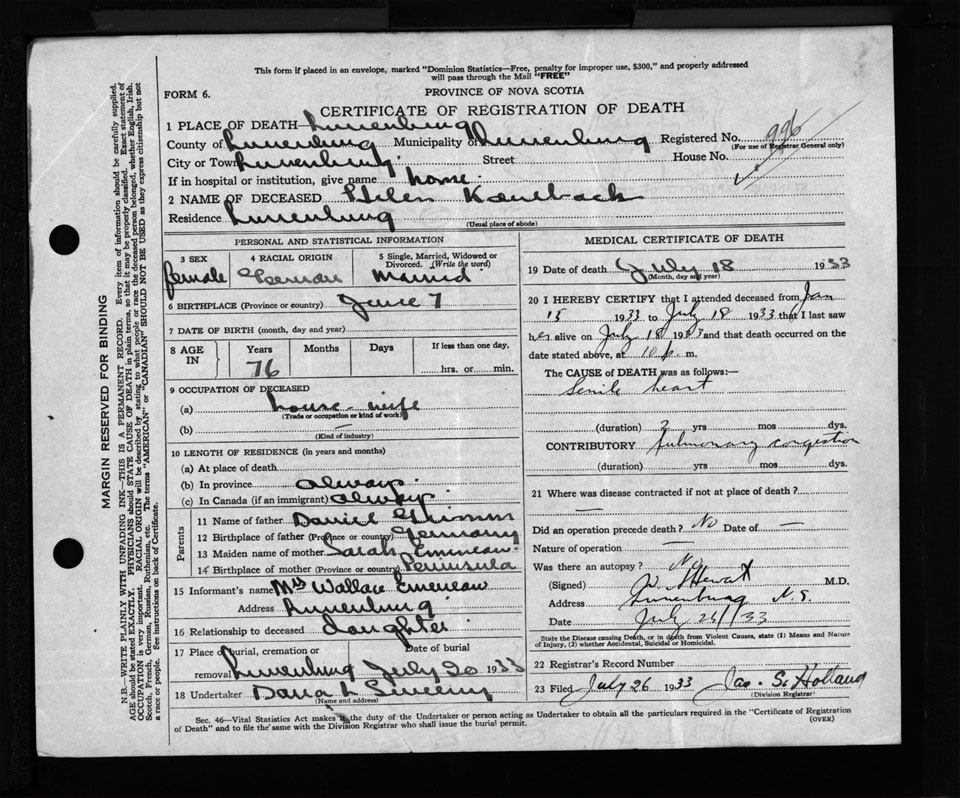 This form if placed in an envelope, marked "Dominion Statistics—Free, penalty for improper use, $300," and properly addressed
will pass through the Mail "FREE"
FORM 6.
PROVINCE OF NOVA SCOTIA
CERTIFICATE OF REGISTRATION OF DEATH
1 PLACE OF DEATH— Lunenburg
County of Lunenburg Municipality of Lunenburg Registered No. 996
(For use of Registrar General only)
City or Town Lunenburg Street House No.
If in hospital or institution, give name home
2 NAME OF DECEASED Helen Kaulback
Residence Lunenburg
(Usual place of abode)
PERSONAL AND STATISTICAL INFORMATION
3 SEX 4 RACIAL ORIGIN 5 Single, Married, Widowed or
Divorced. (Write the word)
female German Married
6 BIRTHPLACE (Province or country) June 7
7 DATE OF BIRTH (month, day and year)
8 AGE IN Years Months Days If less than one day,
76 hrs. or min.
9 OCCUPATION OF DECEASED
(a) house wife
(Trade or occupation or kind of work)
(b) —
(Kind of industry)
10 LENGTH OF RESIDENCE (in years and months)
(a) At place of death
(b) In province always
(c) In Canada (if an immigrant) always
Parents
11 Name of father Daniel Grimm
12 Birthplace of father (Province or country) Germany
13 Maiden name of mother Sarah Emineau
14 Birthplace of mother (Province or country) Peninsula
15 Informant's name Mrs Wallace Emeneau
Address Lunenburg
16 Relationship to deceased daughter
17 Place of burial, cremation or Date of burial
removal Lunenburg July 20 1933
18 Undertaker Dana L Sweeny
(Name and address)
MEDICAL CERTIFICATE OF DEATH
19 Date of death July 18 1933
(Month, day and year)
20 I HEREBY CERTIFY that I attended deceased from Jan
15 1933 to July 18 1933 that I last saw
her alive on July 18 1933 and that death occurred on the
date stated above, at 10 p. m.
The CAUSE of DEATH was as follows:—
Senile heart
(duration) 2 yrs mos dys.
CONTRIBUTORY Pulmonary congestion
(duration) yrs mos dys.
21 Where was disease contracted if not at place of death?
—
Did an operation precede death? No Date of —
Nature of operation —
Was there an autopsy? No
(Signed) Stewart M.D.
Address Lunenburg N.S.
Date July 26/33
State the Disease causing Death, or in death from Violent Causes, state (1) Means and Nature
of Injury, (2) whether Accidental, Suicidal or Homicidal.
22 Registrar's Record Number
23 Filed July 26 1933 Jas. S. Holland
(Division Registrar)
Sec. 46—Vital Statistics Act makes it the duty of the Undertaker or person acting as Undertaker to obtain all the particulars required in the "Certificate of Registration
of Death" and to file the same with the Division Registrar who shall issue the burial permit. (OVER)
MARGIN RESERVED FOR BINDING
N.B.—WRITE PLAINLY WITH UNFADING INK—THIS IS A PERMANENT RECORD. Every item of information should be carefully supplied.
AGE should be stated EXACTLY. PHYSICIANS should STATE CAUSE OF DEATH in plain terms, so that it may be properly classified. Exact statement of
OCCUPATION is very important. RACIAL ORIGIN will be described by stating to what people or race the deceased person belonged, whether English, Irish,
Scotch, French, German, Russian, Ruthenian, etc. The terms "AMERICAN" or "CANADIAN" SHOULD NOT BE USED as they express citizenship but not
a race or people. See instructions on back of Certificate.